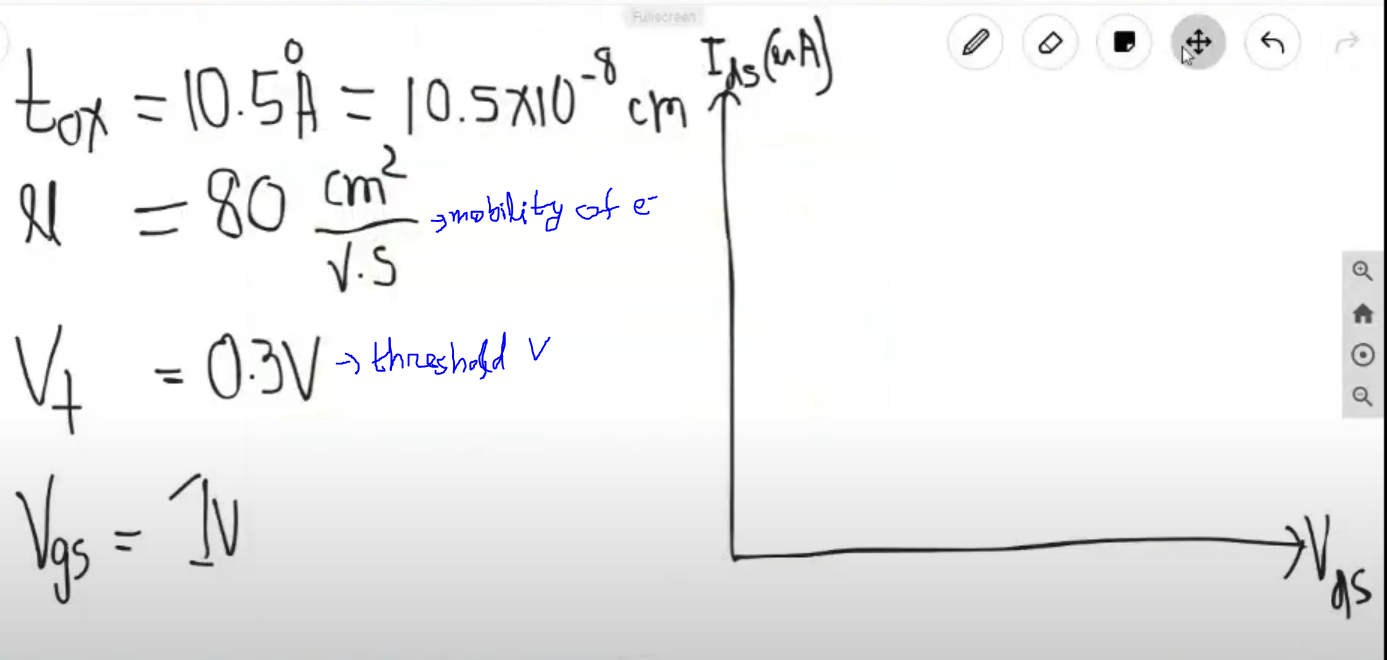 Fullscreen
tox = 10.5 Å = 10.5x10^-8 cm
μ = 80 cm²/V.S → mobility of e⁻
Vt = 0.3V → threshold V
Vgs = 1V
Ids (μA)
Vds